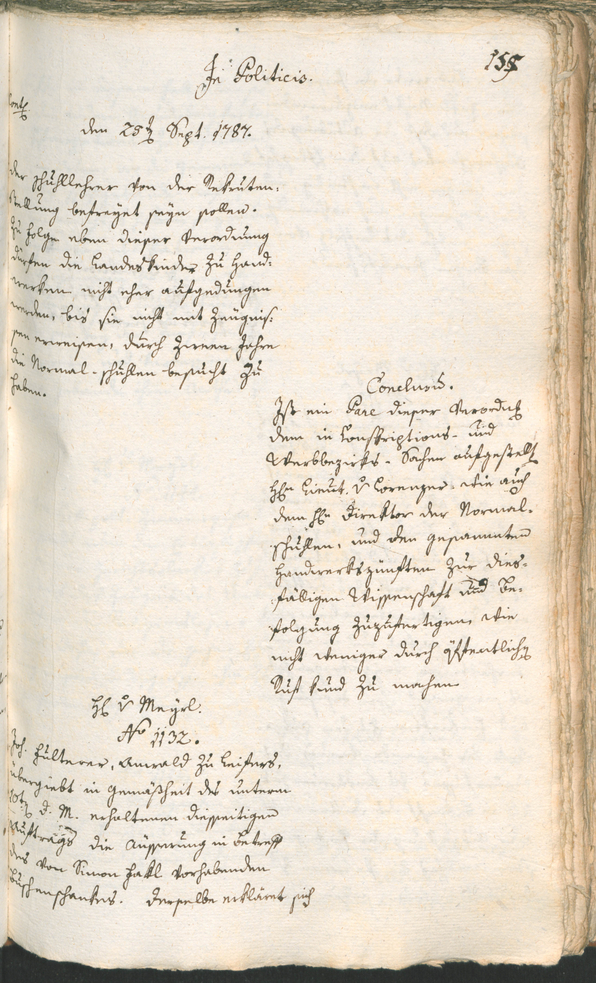 In Politicis.
159
den 28t Sept. 1787.
der Schullehrer von der Rekruten-
stellung befreyet seyn sollen.
Zu folge eben dieser Verordnung
dürfen die Landeskinder zu Hand-
werken nicht eher aufgedungen
werden, bis sie nicht mit Zeugnis-
sen erweisen, durch zween Jahre
die Normal-Schullen besucht zu
haben.
Conclusum.
Ist ein Pare dieser Verordng
dem in Konskriptions- und
Werbbezirks-Sachen aufgestellt
Hn Lieut. v Lorenzer wie auch
dem Hn Direktor der Normal-
schullen, und den gesammten
Handwerkszünften zur dies-
fälligen Wissenschaft und Be-
folgung zuzufertigen, wie
nicht weniger durch öffentlichen
Ruf kund zu machen
H v Meyrl.
No 1132.
Joh. Hulterer, Anwald zu Leifers,
übergiebt in Gemäßheit des unterm
d. M. erhaltenen diesseitigen
Auftrags die Äusserung in Betreff
des von Simon Hakl vorhabenden
Buschenschankes. Derselbe erkläret sich